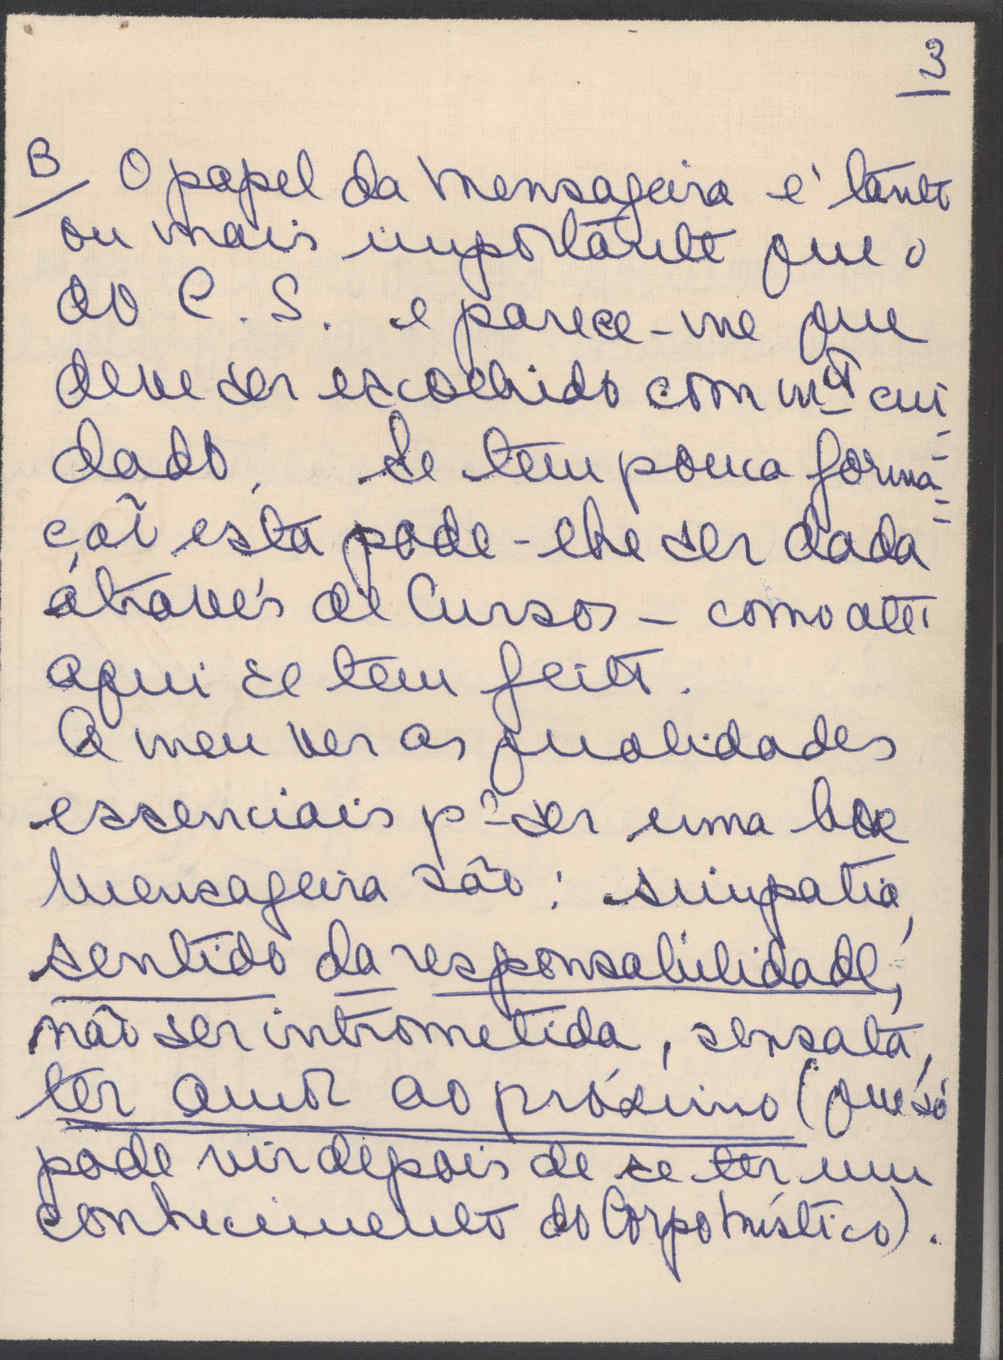 3
B/ O papel da Mensageira é tanto
ou mais importante que o
do C. S. e parece-me que
deve ser escolhido com mto cui
dado. Se tem pouca forma-
ção esta pode-lhe ser dada
através de Cursos - como até
aqui se tem feito.
A meu ver as qualidades
essenciais pª ser uma boa
Mensageira são: simpatia,
sentido da responsabilidade,
não ser intrometida, sensata,
ter amor ao próximo (que só
pode vir depois de se ter um
conhecimento do Corpo Místico).